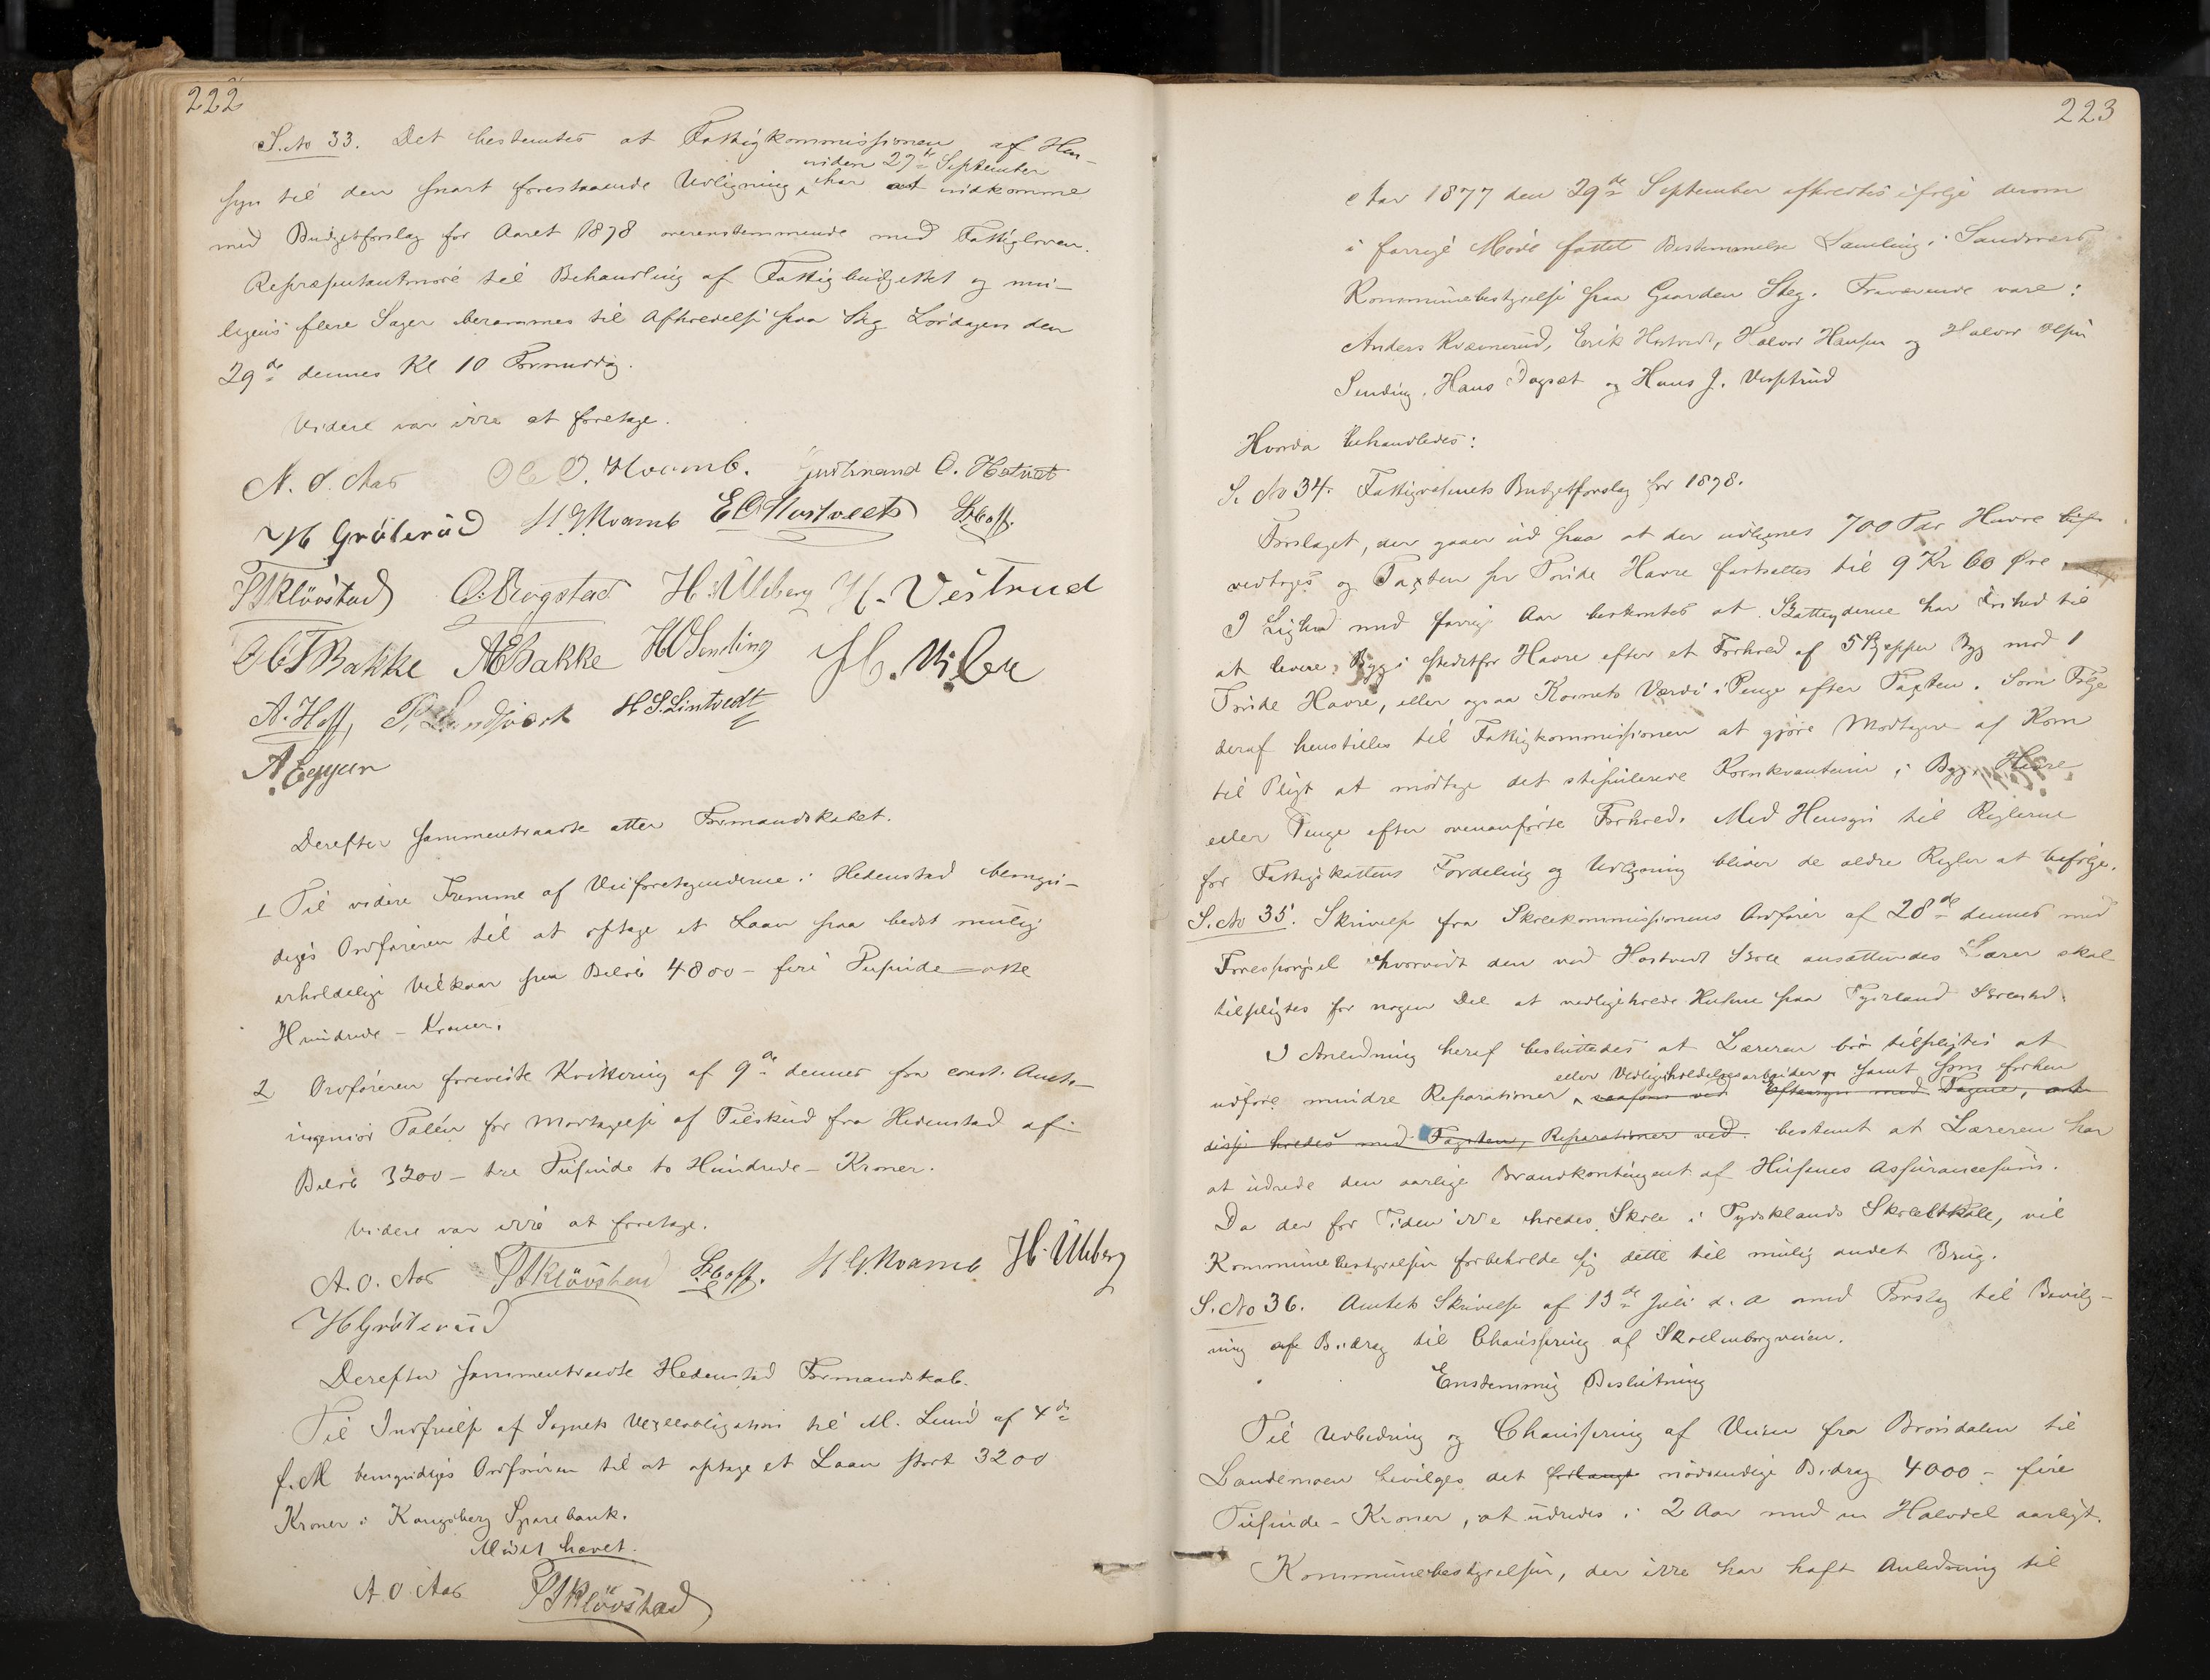 222
S. No 33. Det bestemtes at Fattigkommissionen af Hen-
inden 27de September
syn til den snart forestaaende Udligning, har at indkomme
med Budgetforslag for Aaret 1878 overensstemmende med Fattigloven.
Repræsentantmöde til Behandling af Fattigbudgettet og mu-
ligens flere Sager berammes til Afholdelse paa Skg Lördagen den
29de dennes Kl 10 Formiddag.
Videre var ikke at foretage.
A. O. Aas Ole O. Kvamb. O. Hostvet
H Gråterüd H. G Kvamb E O Hostveets Hoff.
P S Klövstad C. Bergstad H. Ulleberg H. Vestrud
O C T Bakke A E Bakke H O Sending
A. Hoff, P. Landsværk H S. Lintvedt
A
Derefter sammentraadte atter Formandskabet.
1 Til videre Fremme af Veiforetagenderne i Hedenstad bemyn-
diges Ordföreren til at optage et Laan paa bedst mulig
erholdelige Vilkaar paa Belöb 4800 – fire Tusinde – otte
Hundrede – Kroner.
2 Ordföreren foreviste Kvittering af 9de dennes fra const. Amts-
ingeniör Palén for Modtagelse af Tilskud fra Hedenstad af
Belöb 3200 – tre Tusinde to Hundrede – Kroner.
Videre var ikke at foretage.
A. O. Aas P S Klövstad Hoff. H G. Kvamb H. Ulleberg
H Gråterüd
Derefter sammentraadte Hedenstad Formandskab.
Til Indfrielse af Sognets Vexelobligation til M. Lund af 4de
f. M bemyndiges Ordföreren til at optage et Laan stort 3200
Kroner i Kongsberg Sparebank.
Mödet hævet.
A O. Aas P S Klövstad
223
Aar 1877 den 29de September afholdtes ifölge derom
i forrige Möde fattet Bestemmelse Samling i Sandsværd
Kommunebestyrelse paa Gaarden Skg. Fraværende vare:
Anders Kværnerud, Erik Hostvedt, Halvor Hansen og Halvor Olsen
Sending, Hans Dagsæt og Hans J. Vestrud
Hvorda behandledes:
S. No 34. Fattigvæsnets Budgetforslag for 1878.
Forslaget, der gaaer ud paa at der udlignes 700 Tdr Havre
vedtoges og Taxten pr Tönde Havre fastsattes til 9 Kr 60 Öre
I Lighed med forrige Aar bestemtes at Skatteyderne har Frihed til
at levere Byg i stedetfor Havre efter et Forhold af 5 Skjepper Byg mod 1
Tönde Havre, eller ogsaa Kornets Værdi i Penge efter Taxten. Som Fölge
deraf henstilles til Fattigkommissionen at gjöre Modtagere af Korn
til Pligt at modtage det stipulerede Kornkvantum i Byg, Havre
eller Penge efter ovenanförte Forhold. Med Hensyn til Reglerne
for Fattigskattens Fordeling og Udligning bliver de ældre Regler at befölge.
S. No 35. Skrivelse fra Skolekommissionens Ordförer af 28de dennes med
Forespörgsel hvorvidt den ved Hostvedt Skole ansættendes Lærer skal
tilpligtes for nogen Del at vedligeholde Husene paa
I Anledning heraf besluttedes at Læreren bör tilpligtes at
eller Vedligeholdelsesarbeider, samt som forhen
udföre mindre Reparationer saasom ved Eftersyn med Tagene, at
disse holdes med Tagsten, Reparationer ved bestemt at Læreren har
at udrede den aarlige Brandkontingent af Husenes Assurancesum.
Da der for Tiden ikke holdes Skole i Skole, vil
Kommunebestyrelsen forbeholde sig dette til mulig andet Brug.
S. No 36. Amtets Skrivelse af 13de Juli d. A med Forslag til Bevilg-
ning af Bidrag til Chaussering af Skollenborgveien.
Enstemmig Beslutning
Til Udbedring og Chaussering af Veien fra Bröndalen til
Landemoen bevilges det forlangte nödvendige Bidrag 4000 – fire
Tusinde – Kroner, at udredes i 2 Aar med en Halvdel aarligt.
Kommunebestyrelsen, der ikke har haft Anledning til